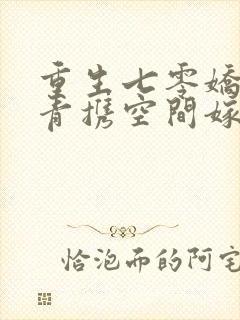 重生七零嬌
青携空間嫁
恰泡面的阿宅